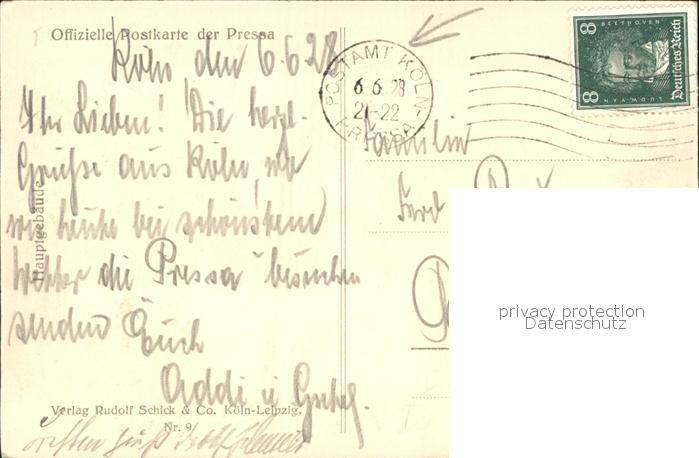 Offizielle Postkarte der Pressa
Köln den 6.6.28
Ihr Lieben! Die herzl.
Grüße aus Köln, wo
wir heute bei schönstem
Wetter die "Pressa" besuchen
senden Euch
Addi u Gretel.
Hauptgebäude
Verlag Rudolf Schick & Co. Köln-Leipzig.
Nr. 9
POSTAMT KÖLN-
6.6.28
21-22
PRESSA
8 BEETHOVEN
LUDW. VAN
Deutsches Reich
8
Familie
Ferd
privacy protection
Datenschutz